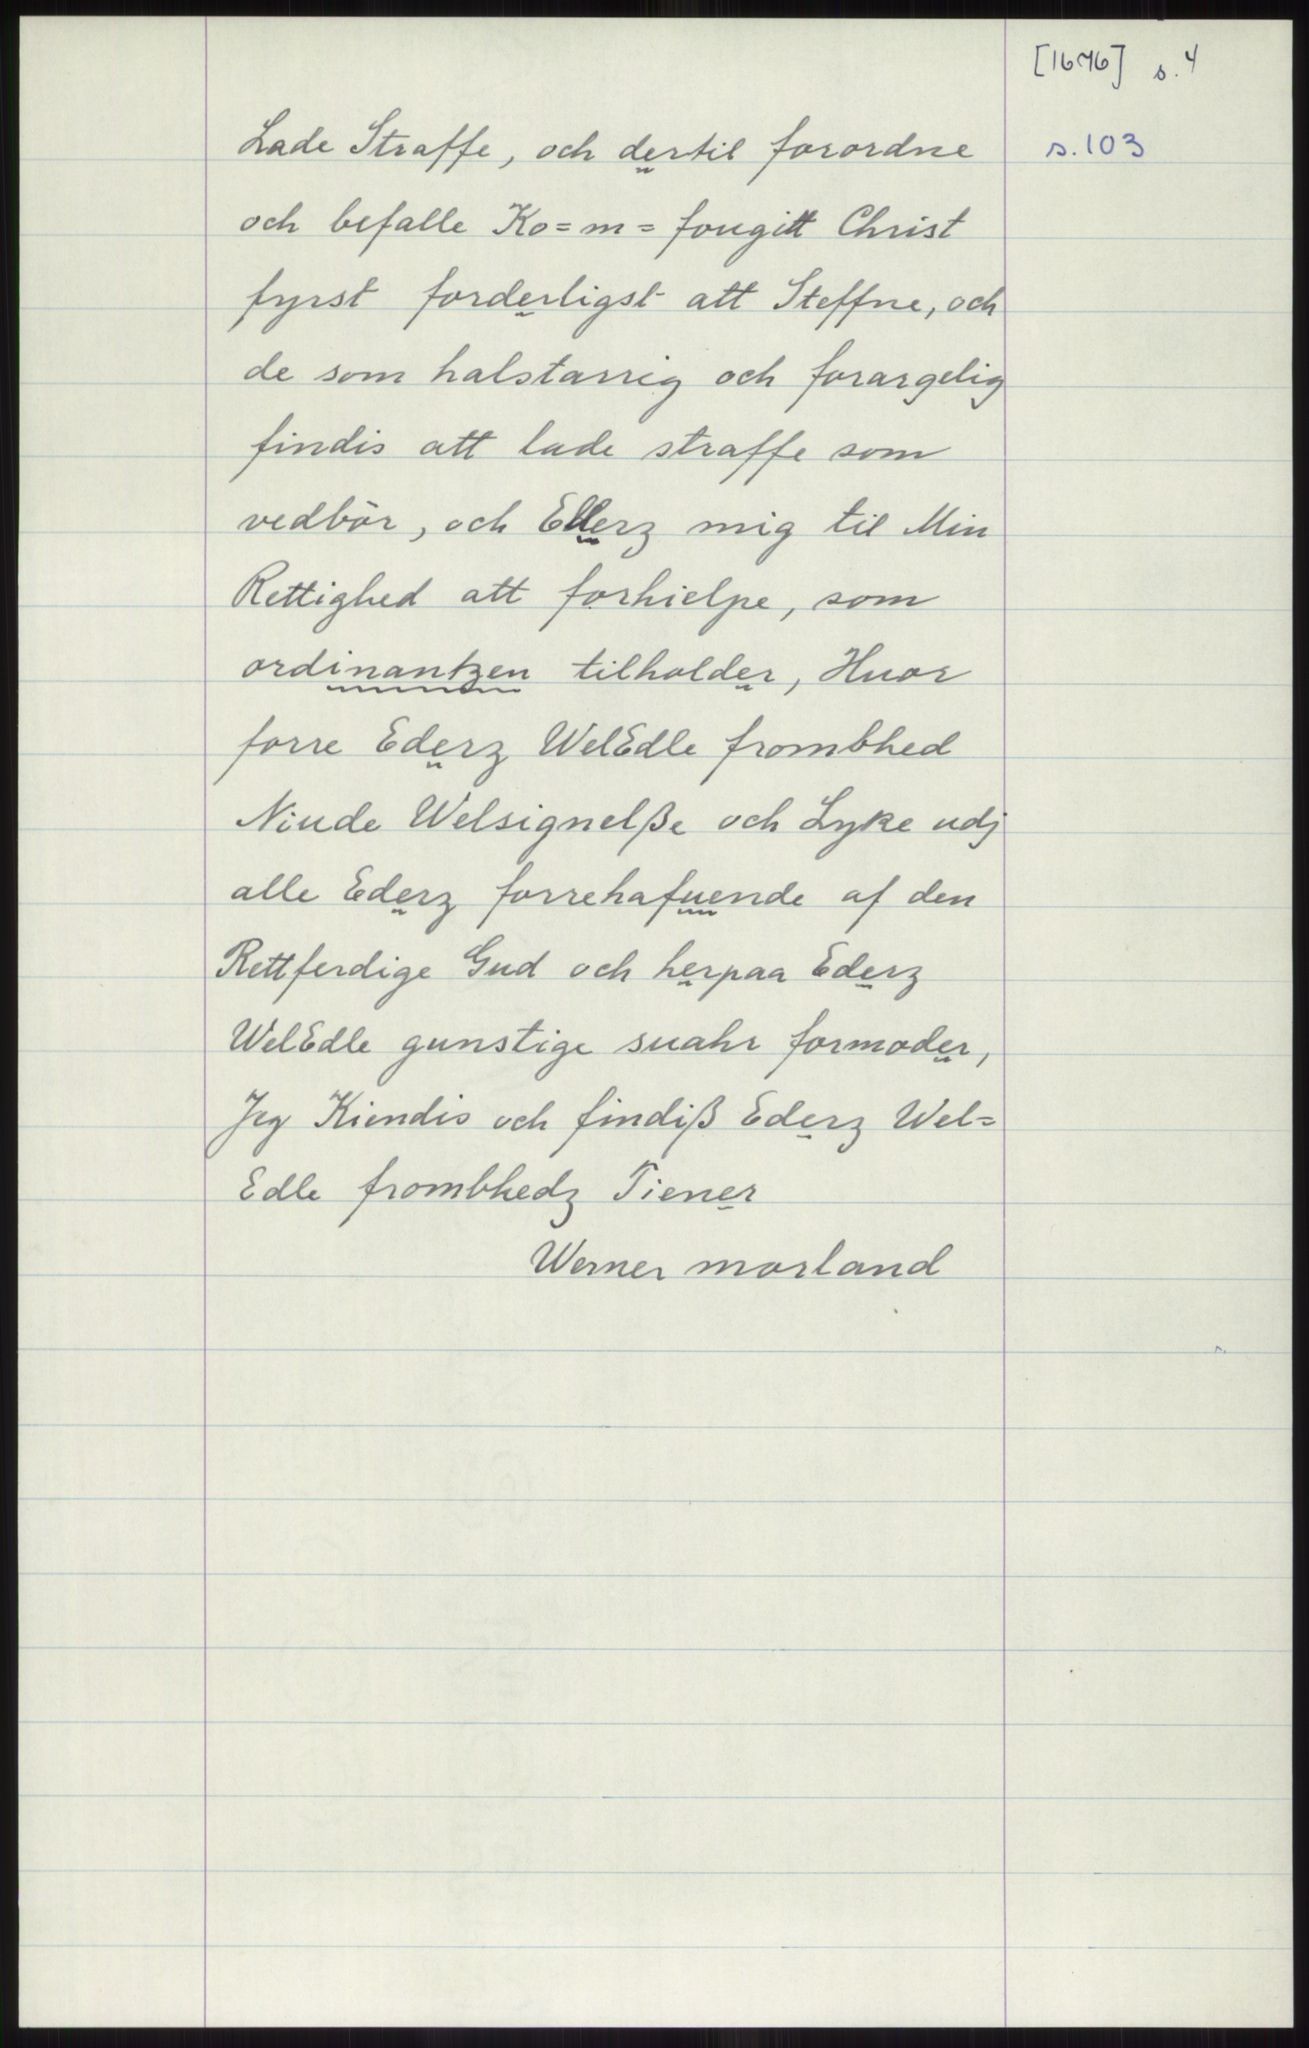 [1676] s. 4
s. 103
Lade Straffe, och dertil forordne
och befalle Ko=m= fougitt Christ
fyrst forderligst att Steffne, och
de som halstarrig och forargelig
findis att lade straffe som
vedbör, och Ellerz mig til Min
Rettighed att forhielpe, som
ordinantzen tilholder, Huor
forre Ederz WelEdle frombhed
Niude Welsignelße och Lyke udj
alle Ederz forrehafuende af den
Rettferdige Gud och herpaa Ederz
WelEdle gunstige suahr formoder,
Jeg Kiendis och findiß Ederz Wel=
Edle frombhedz Tiener
Werner morland